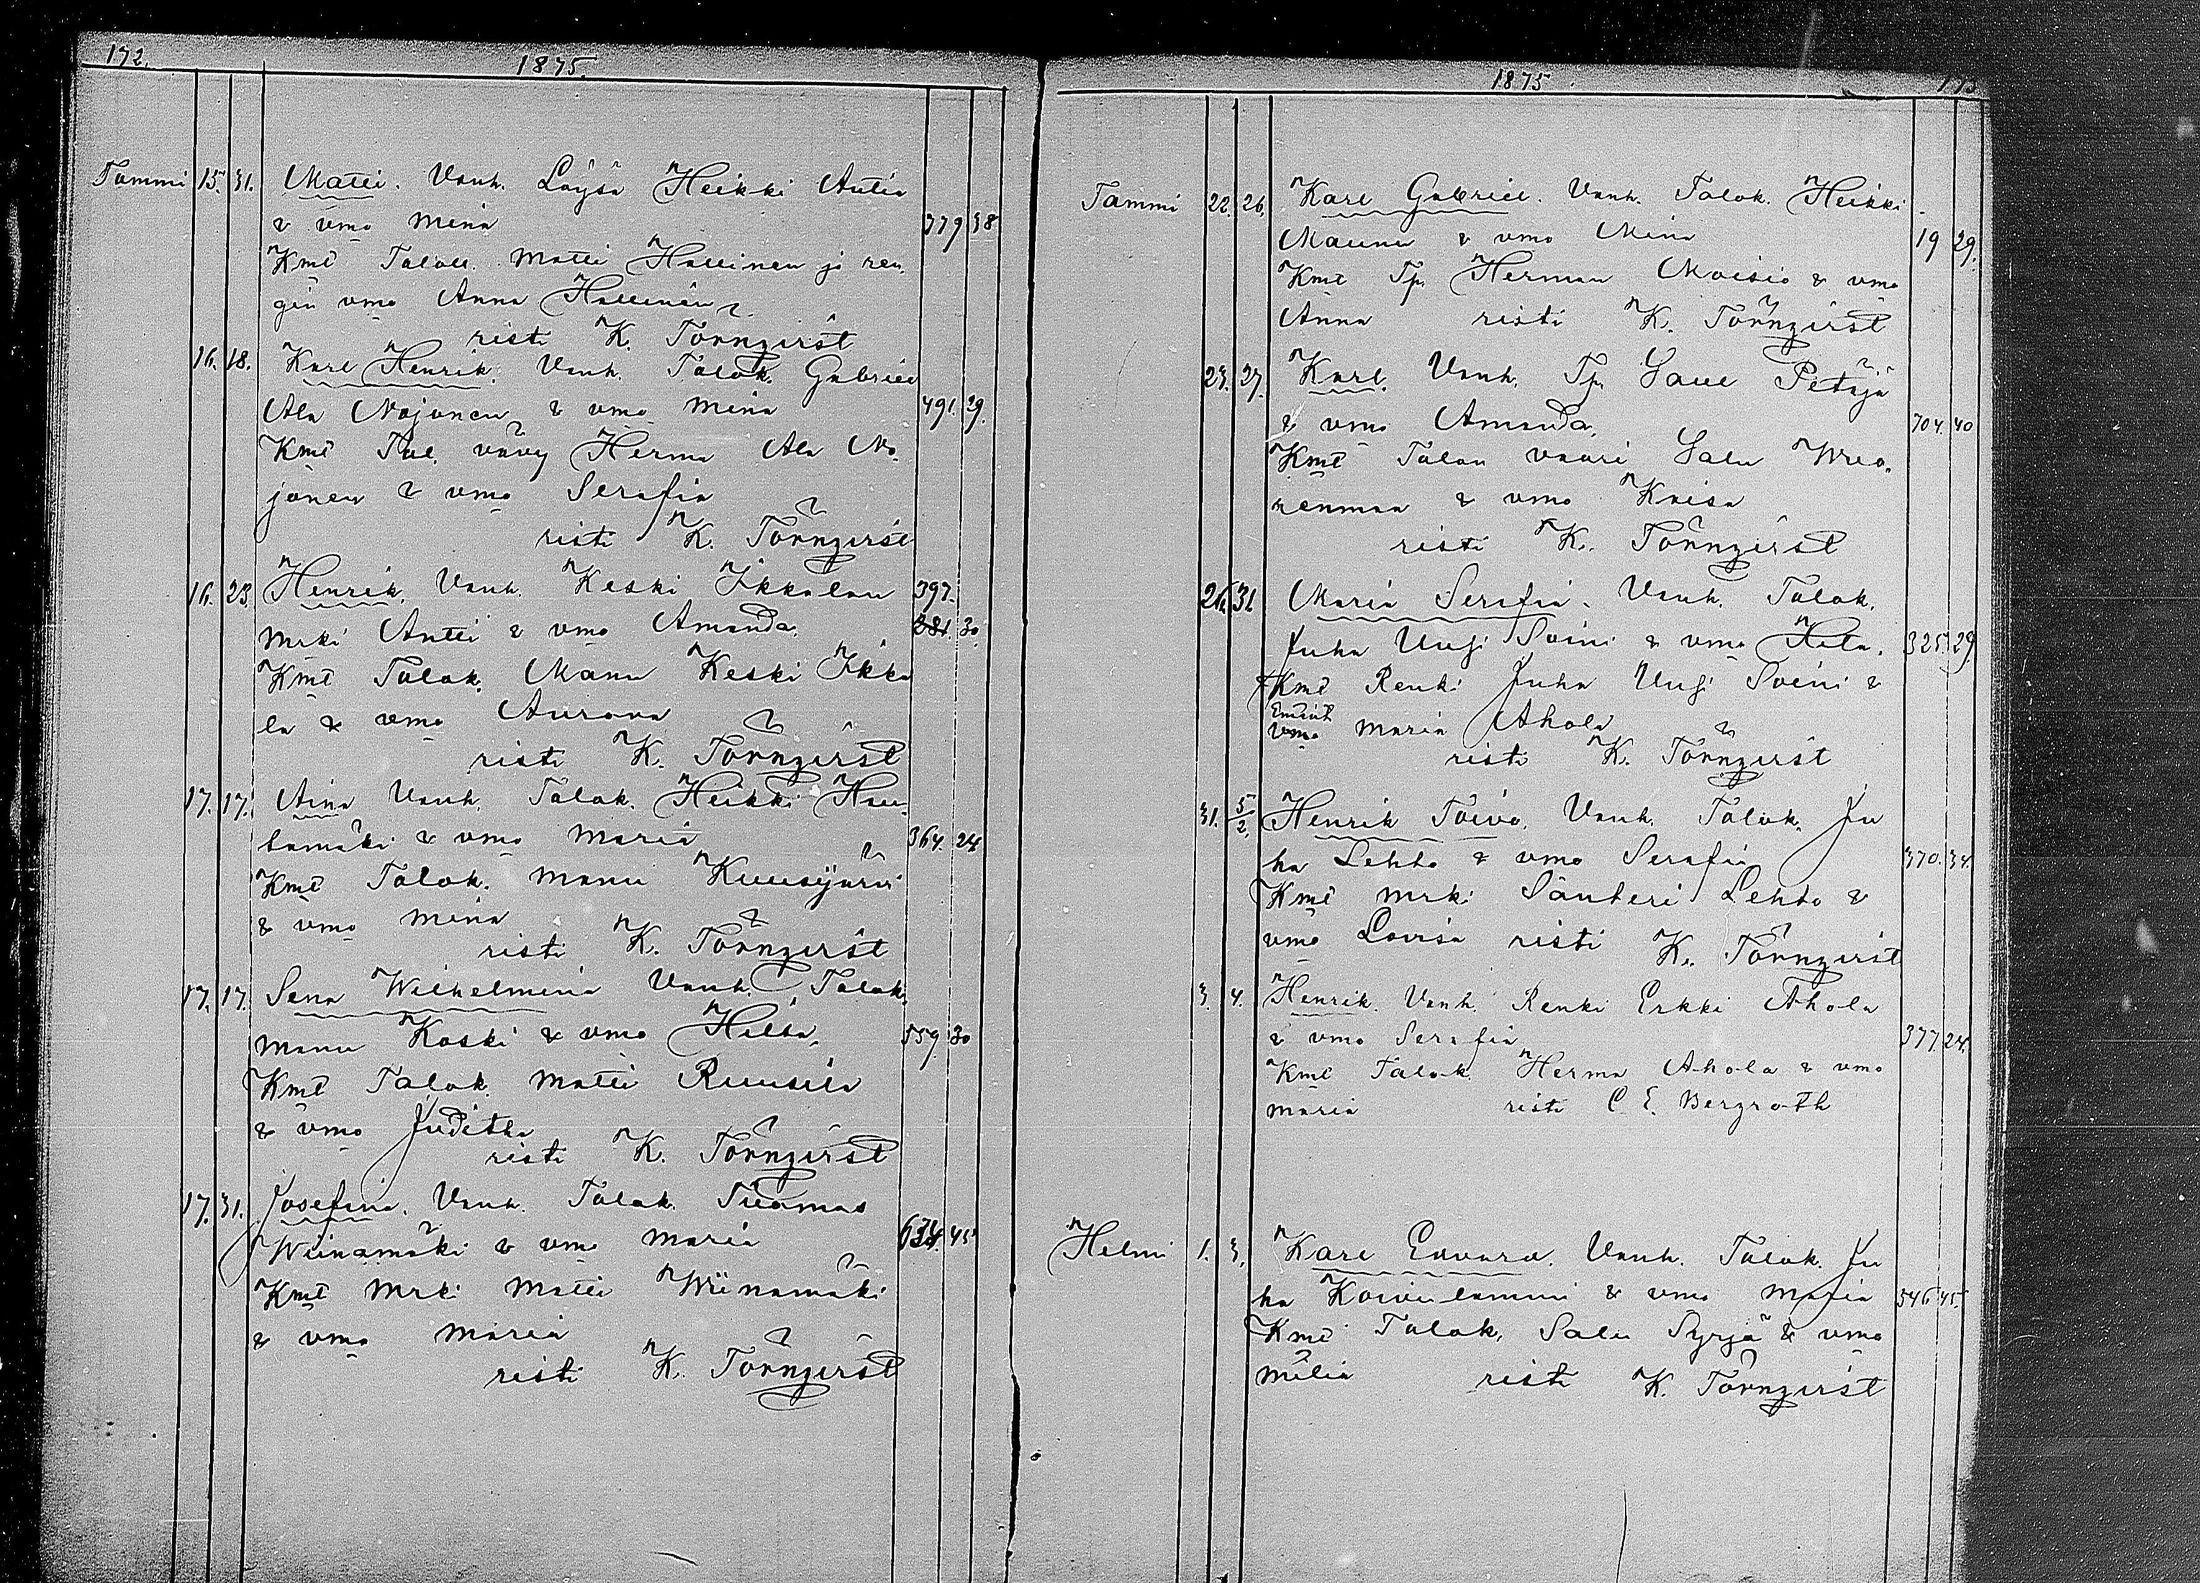 172.
1875.
Tammi 15. 31. Matti. Vanh. Loysä Heikki Antin
& vmo Mina 779 38
Kmt Talok. Matti Hallinen ja ren
gin vmo Anna Hallinen
risti K. Törnqvist
16. 18. Karl Henrik. Vanh. Talok. Gabriel
Ala Nojonen & vmo Mina 491. 29.
Kmt Tal. vävy Herma Ala No
jonen & vmo Serafia
risti K. Törnqvist
16. 23. Henrik. Vanh. Keski Ikkalan 397.
mrki Antti & vmo Amanda. 281. 30.
Kmt Talok. Manu Keski Ikka
la & vmo Aurora
risti K. Törnqvist
17. 17. Aina Vanh. Talok. Heikki Hau
tamäki & vmo Maria 364. 24
Kmt Talok. Manu Kuusijärvi
& vmo Mina
risti K. Törnqvist
17. 17. Sanna Wilhelmina Vanh. Talok.
Manu Koski & vmo Hilta, 559. 30
Kmt Talok. Matti Ruusila
& vmo Juditha
risti K. Törnqvist
17. 31. Josefina. Vanh. Talok. Tuomas
Wiinamäki & vmo Maria 634. 45
Kmt Mrki Matti Wiinamäki
& vmo Maria
risti K. Törnqvist
1875.
173
Tammi 22. 26. Karl Gabriel. Vanh. Talok. Heikki
Maunu & vmo Mina 19 29.
Kmt Tp. Herman Moisio & vmo
Anna risti K. Törnqvist
23. 27. Karl. Vanh. Tp. Saul Petäjä
& vmo Amanda. 704. 40
Kmt Talon vaari Salu
& vmo Kaisa
risti K. Törnqvist
26. 31 Maria Serafia. Vanh. Talok.
Juha Uusi Soini & vmo 325. 29.
Kmt Renki Juha Uusi Soini &
Emänt
vmo Maria Ahola
risti K. Törnqvist
31. 5/2. Henrik Toivo. Vanh. Talok. Ju
ha Lehto & vmo Serafia 370. 34.
Kmt mrki Santeri Lehto &
vmo Lovisa risti K. Törnqvist
3. 4. Henrik. Vanh. Renki Erkki Ahola
& vmo Serafia 377. 24.
Kmt Talok. Herma Ahola & vmo
Maria risti C. E. Bergroth
Helmi 1. 3. Karl Edvard. Vanh. Talok. Ju
ha Koivulammi & vmo Maria 546. 45.
Kmt Talok, Salu Syrjä & vmo
Milia risti K. Törnqvist